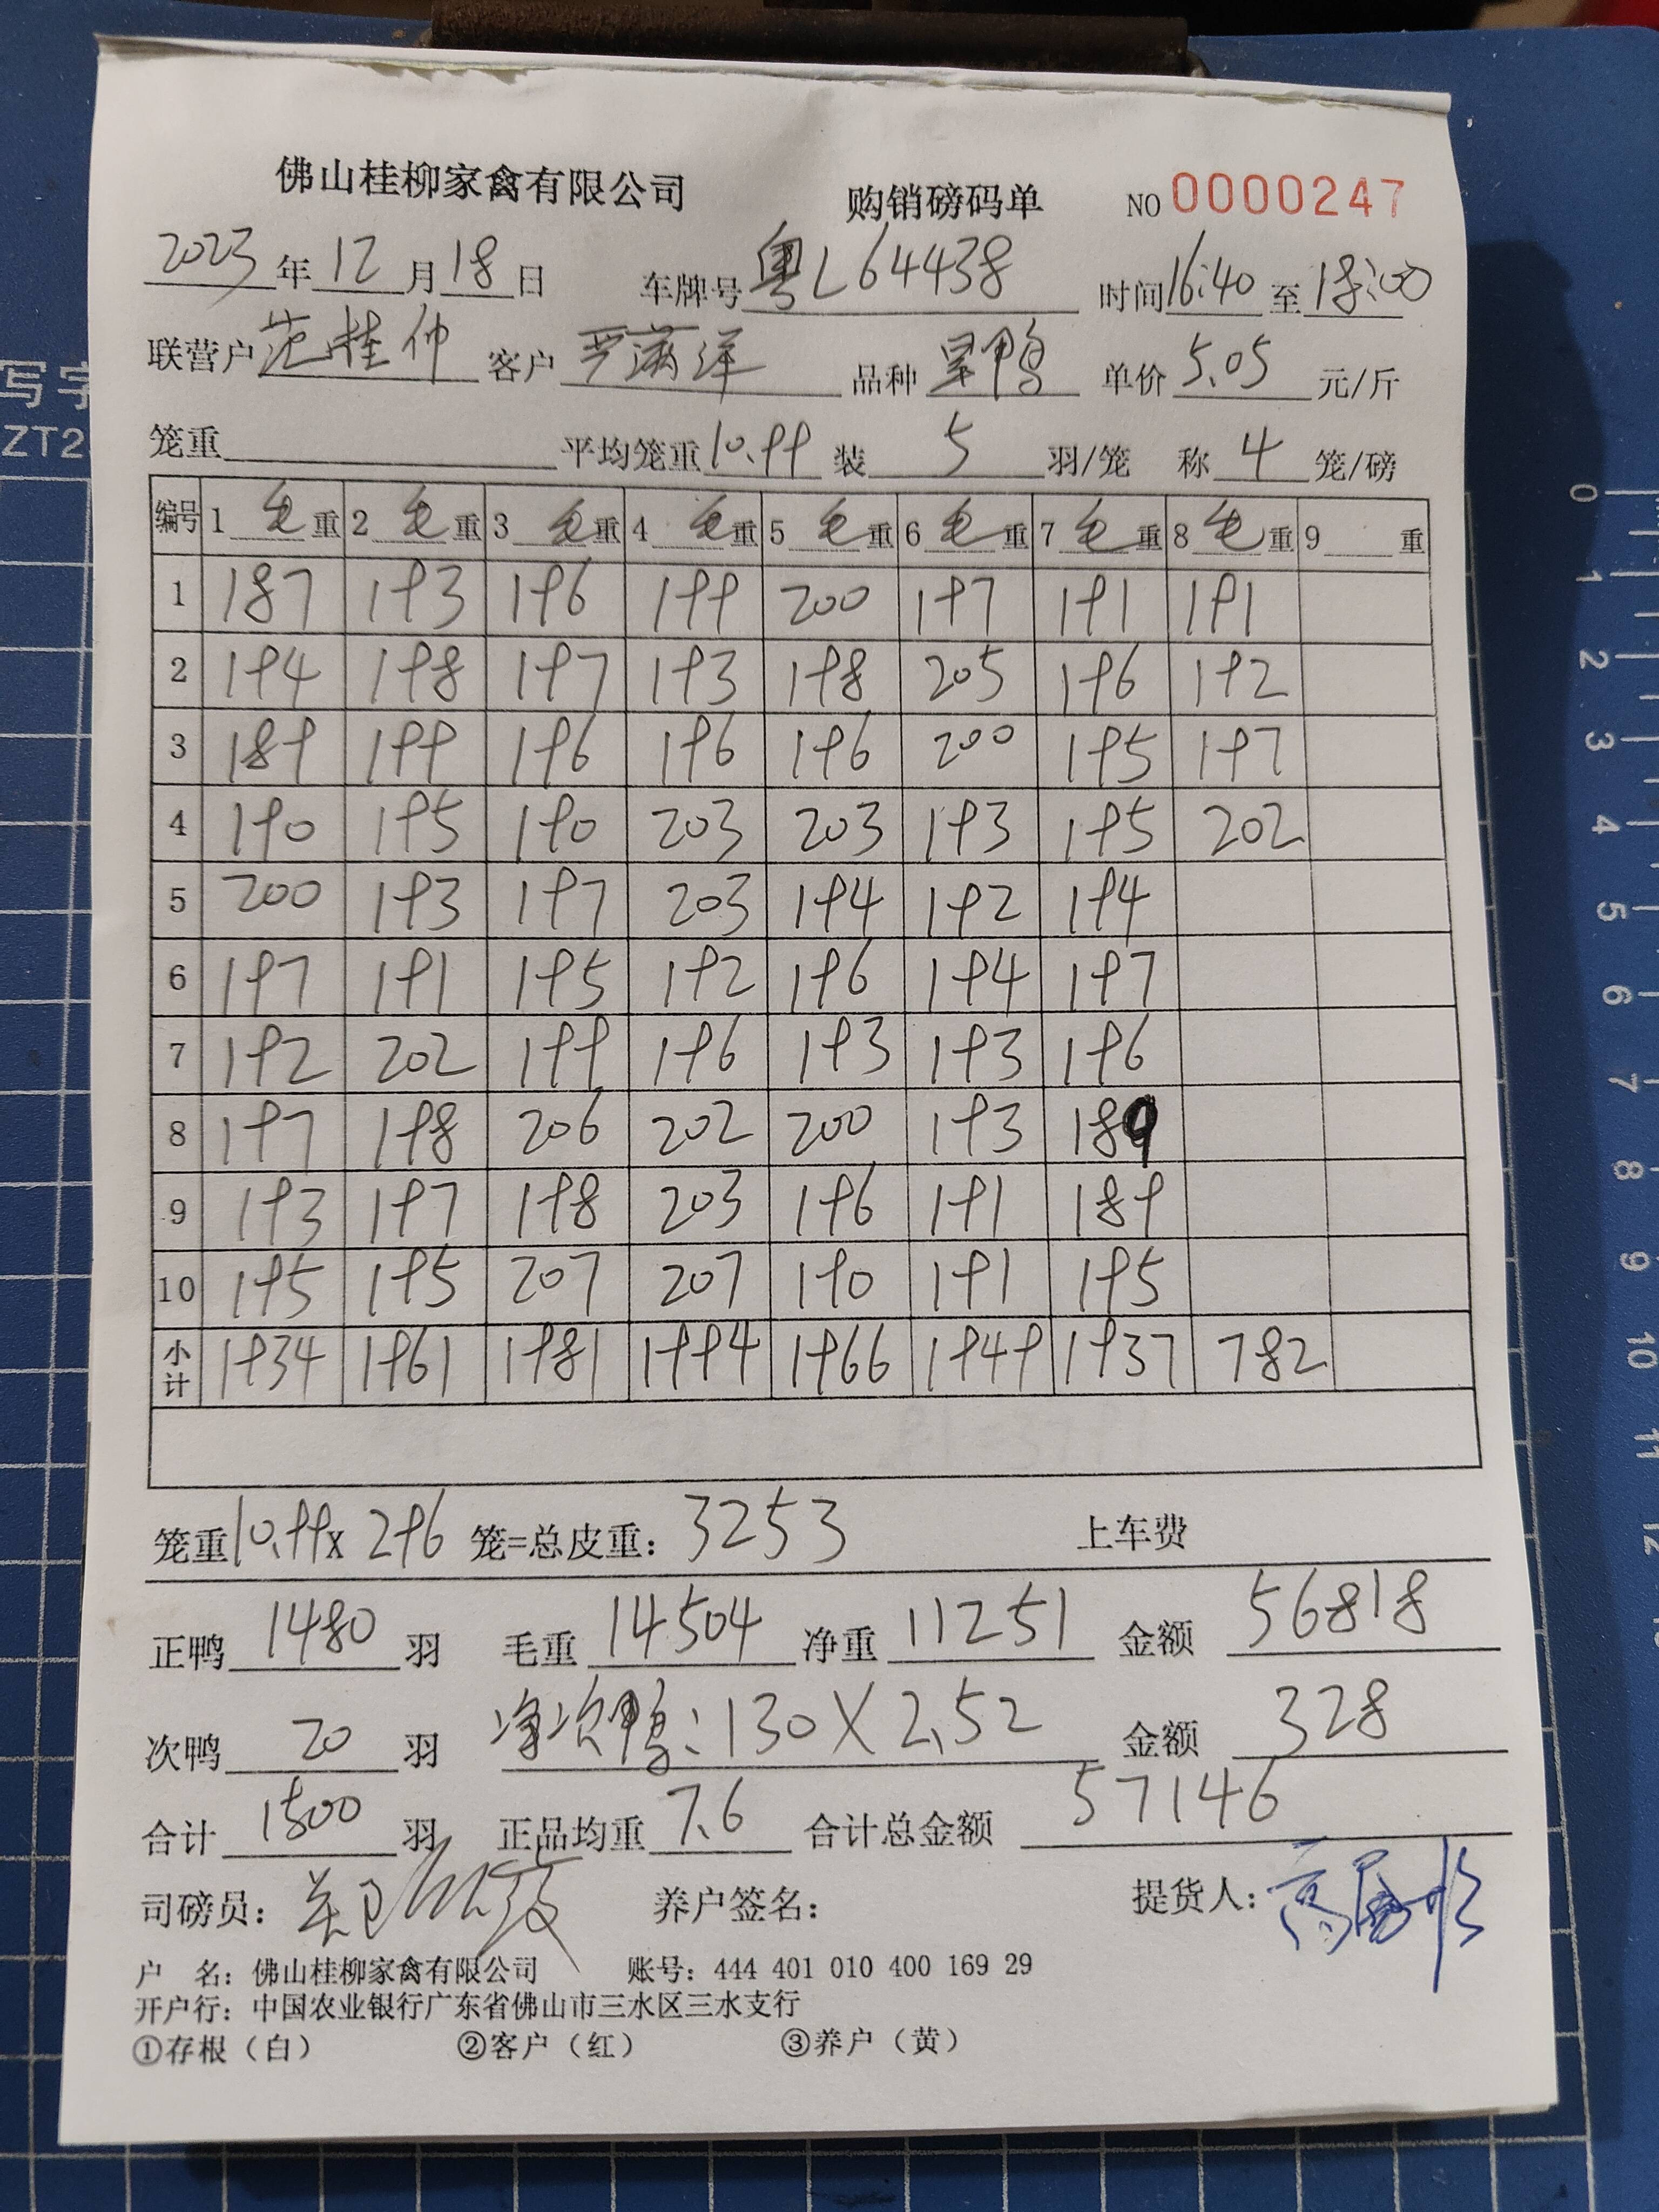 佛山桂柳家禽有限公司 购销磅码单 NO 0000247
2023年12月18日 车牌号粤L64438 时间16:40至18:00
联营户范桂仲 客户罗满洋 品种旱鸭 单价5.05元/斤
笼重 平均笼重10.99 装5羽/笼 称4笼/磅
编号 1毛重 2毛重 3毛重 4毛重 5毛重 6毛重 7毛重 8毛重 9重
1 187 193 196 199 200 197 191 191
2 194 198 197 193 198 205 196 192
3 189 199 196 196 196 200 195 197
4 190 195 190 203 203 193 195 202
5 200 193 197 203 194 192 194
6 197 191 195 192 196 194 197
7 192 202 199 196 193 193 196
8 197 198 206 202 200 193 189
9 193 197 198 203 196 191 189
10 195 195 207 207 190 191 195
小计 1934 1961 1981 1994 1966 1949 1937 782
笼重10.99x296 笼=总皮重：3253 上车费
正鸭1480羽 毛重14504 净重11251 金额56818
次鸭20羽 净次鸭：130X2.52 金额328
合计1500羽 正品均重7.6 合计总金额57146
司磅员： 养户签名： 提货人：
户 名：佛山桂柳家禽有限公司 账号：444 401 010 400 169 29
开户行：中国农业银行广东省佛山市三水区三水支行
①存根（白） ②客户（红） ③养户（黄）
写字
ZT2
0
1
2
3
4
5
6
7
8
9
10
11
12